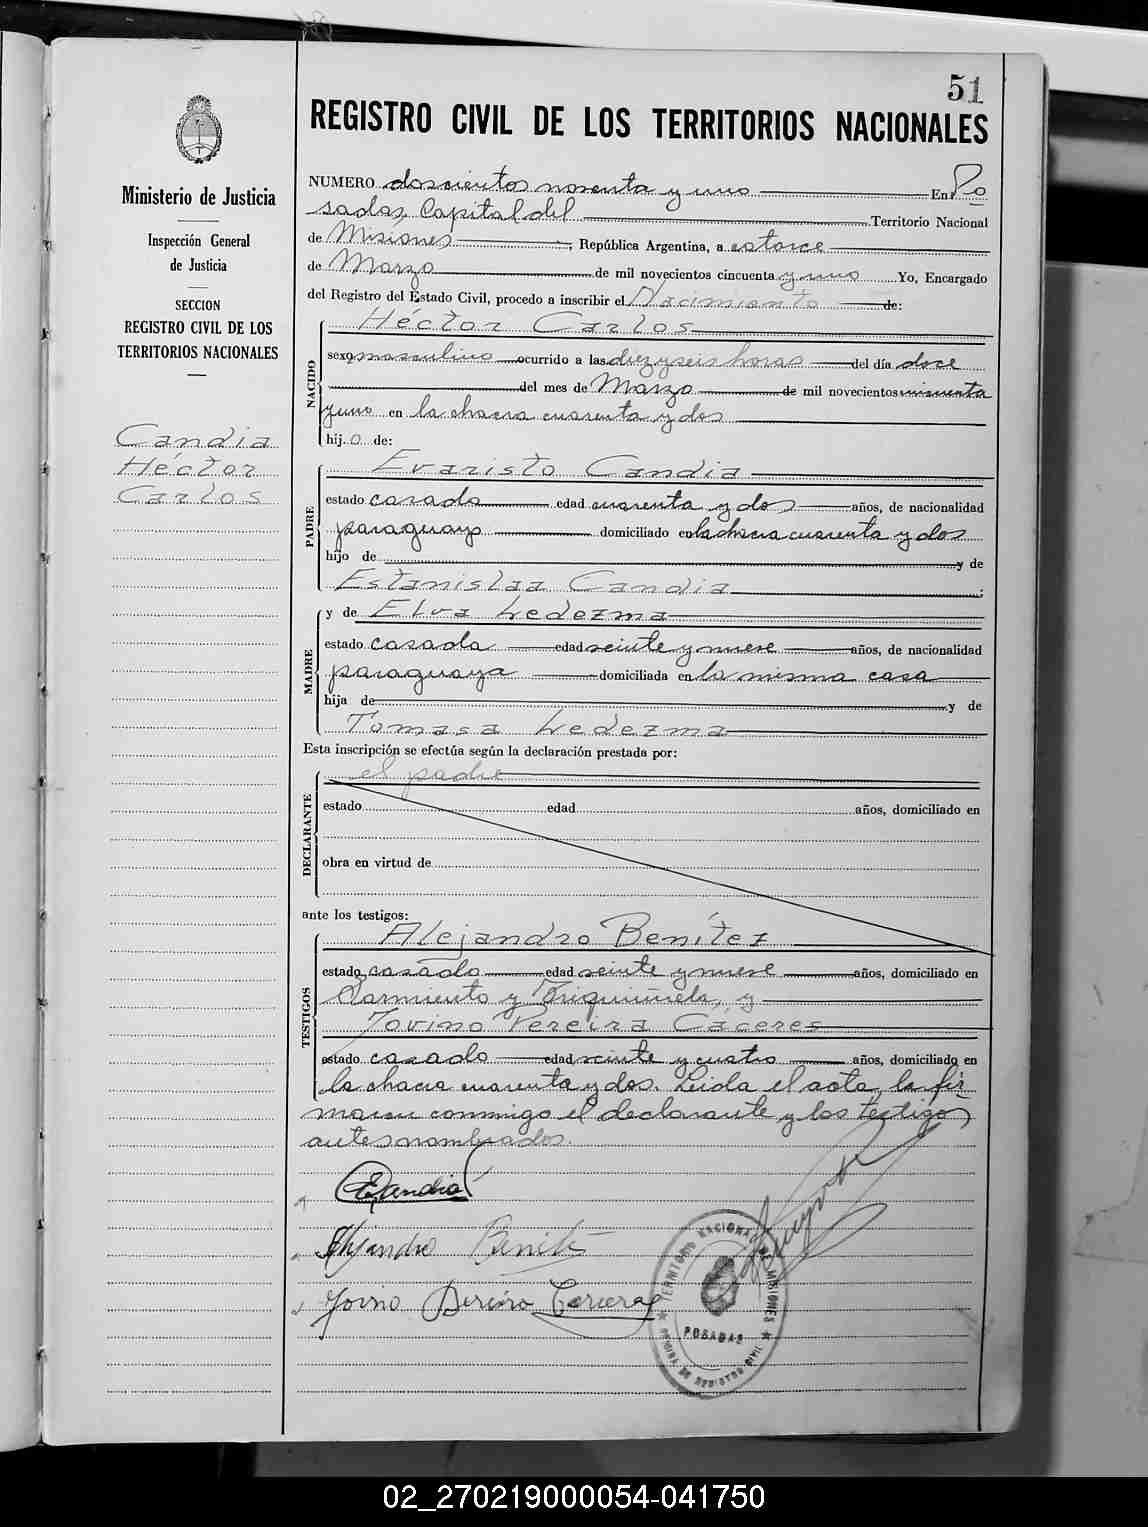 51
REGISTRO CIVIL DE LOS TERRITORIOS NACIONALES
Ministerio de Justicia
Inspección General
de Justicia
SECCION
REGISTRO CIVIL DE LOS
TERRITORIOS NACIONALES
Candia
Héctor
Carlos
NUMERO doscientos noventa y uno En Po
sadas, Capital del Territorio Nacional
de Misiones, República Argentina, a catorce
de Marzo de mil novecientos cincuenta y uno Yo, Encargado
del Registro del Estado Civil, procedo a inscribir el Nacimiento de:
NACIDO
Héctor Carlos
sexo masculino ocurrido a las diez y seis horas del día doce
del mes de Marzo de mil novecientos cincuenta
y uno en la chacra cuarenta y dos
hijo de:
PADRE
Evaristo Candia
estado casado edad cuarenta y dos años, de nacionalidad
paraguayo domiciliado en la chacra cuarenta y dos
hijo de y de
Estanislaa Candia
MADRE
y de Elva Ledezma
estado casada edad veinte y nueve años, de nacionalidad
paraguaya domiciliada en la misma casa
hija de y de
Tomasa Ledezma
Esta inscripción se efectúa según la declaración prestada por:
DECLARANTE
el padre
estado edad años, domiciliado en
obra en virtud de
ante los testigos:
TESTIGOS
Alejandro Benítez
estado casado edad veinte y nueve años, domiciliado en
Sarmiento y, y
Jovino Pereira Cáceres
estado casado edad veinte y cuatro años, domiciliado en
la chacra cuarenta y dos. Leida el acta, la fir
maron conmigo el declarante y los testigos
antes nombrados.
ECandia
Alejandro Benitez
Jovino Pereira
TERRITORIO NACIONAL DE MISIONES
POSADAS
OFICINA DE REGISTRO CIVIL
02_270219000054-041750